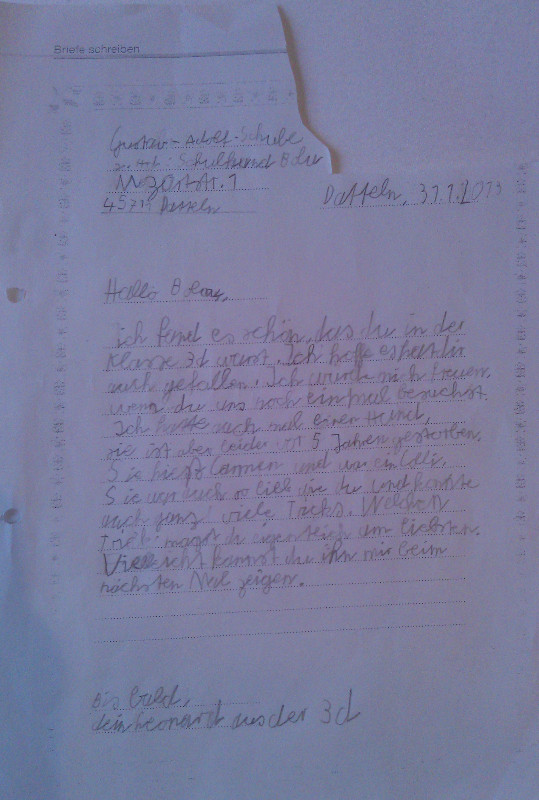 Briefe schreiben
Gustav-Adolf-Schule
Schulhund
Mozartstr. 1
45711 Datteln
Datteln, 31.1.2013
Hallo
ich fand es schön, das du in der
Klasse 3d warst. Ich hoffe es hat dir
auch gefallen. Ich würde mich freuen
wenn du uns noch einmal besuchst.
Ich hatte auch mal einen Hund,
sie ist aber leider vor 5 Jahren gestorben.
Sie hieß und war ein
Sie war auch so lieb wie du und konnte
auch ganz viele Tricks. Welchen
magst du eigentlich am liebsten.
Vielleicht kannst du ihn mir beim
nächsten Mal zeigen.
Bis bald,
dein Leonard aus der 3d